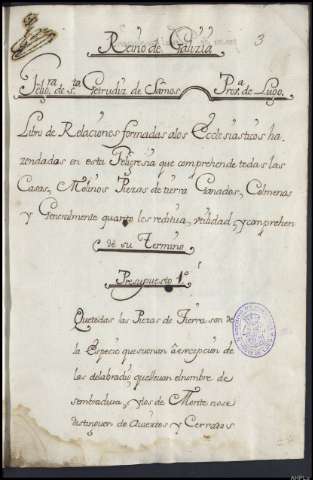 Reino de Galizia
3
Felig.ra de s.ta Getrudiz de Samos Prov.a de Lugo.
Libro de Relaciones formadas alos Ecclesiasticos ha
zendados en esta Feligresia que comprehende todas las
Casas, Molinos Piezas de tierra Ganados, Colmenas
y Generalmente quanto les reditua, utilidad, y comprehen
de su Termino
Presupuesto 1º
Que todas las Piezas de Tierra son de
la Especie que suenan à excepcion de
las de labradio que lleuan el nombre de
sembradura, y los de Monte no se
distinguen de Auiertos y Cerrados
AHPLu